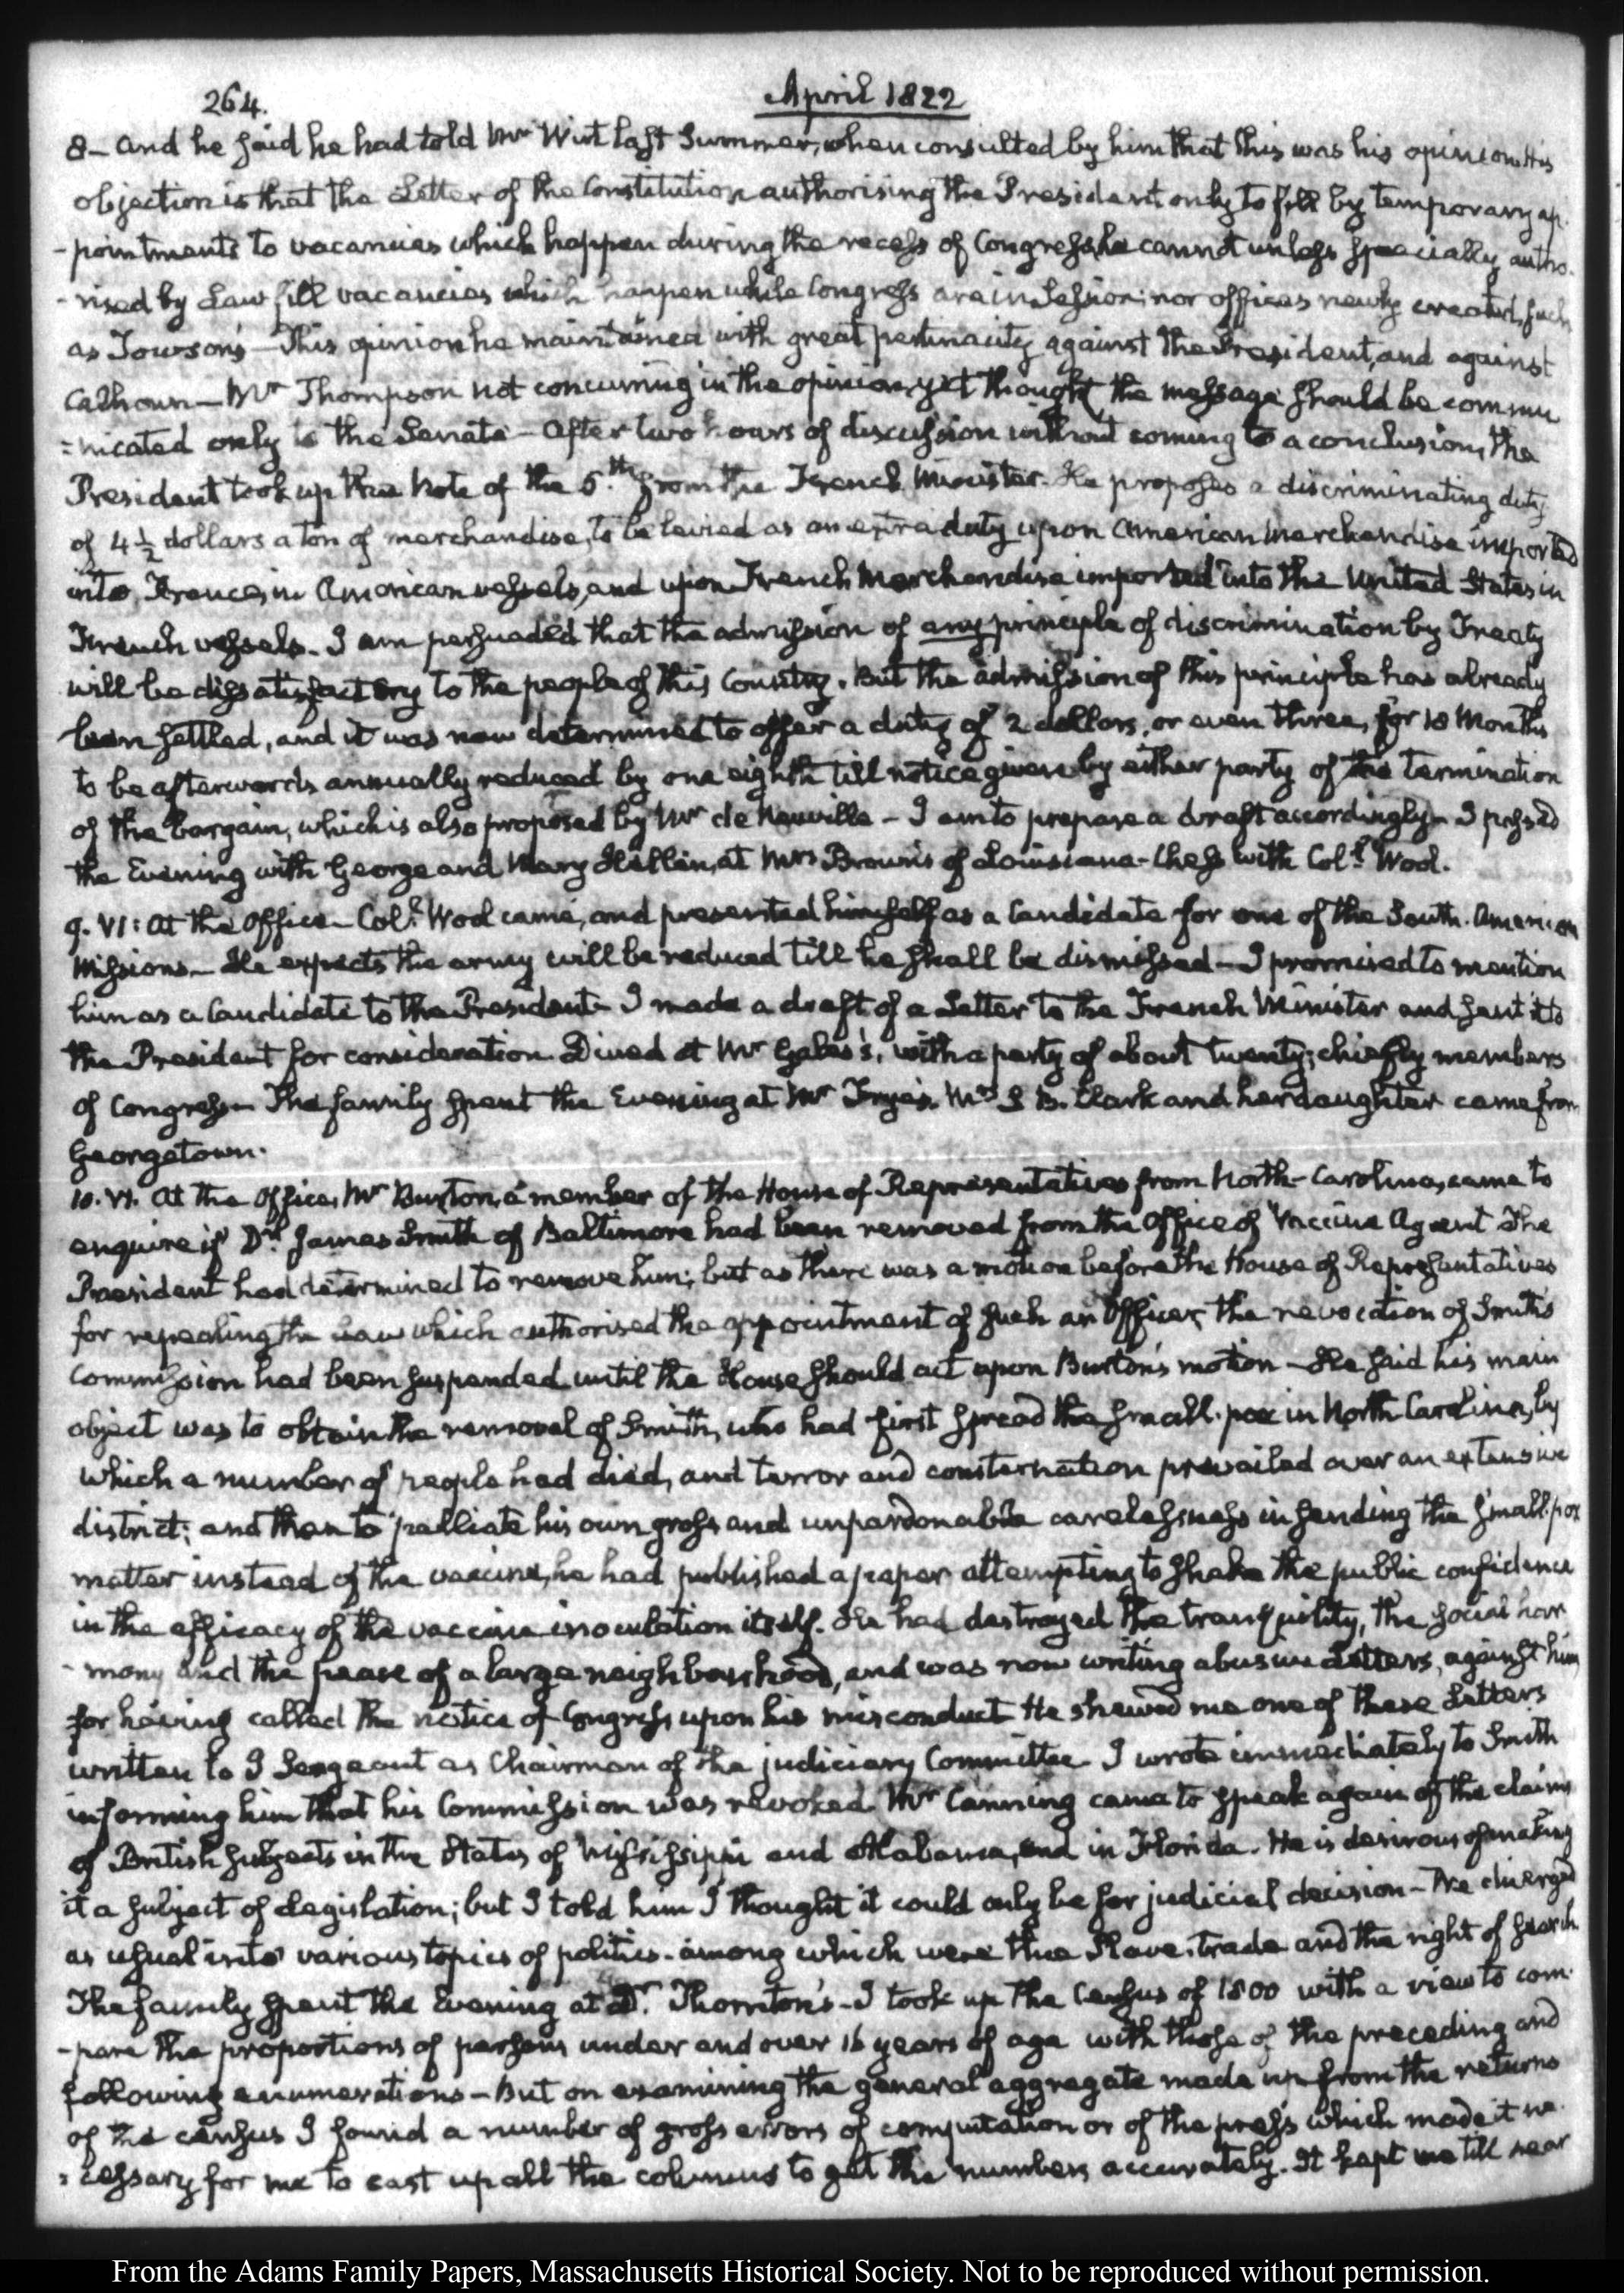 264.
April 1822
8 - and he said he had told Mr Wirt last Summer, when consulted by him that this was his opinion. His
objection is that the Letter of the Constitution authorising the President only to fill by temporary ap-
-pointments to vacancies which happen during the recess of Congress, he cannot unless specially autho-
-rised by Law fill vacancies which happen while Congress are in Session; nor offices newly created, such
as Towson's - This opinion he maintained with great pertinacity against the President, and against
Calhoun - Mr Thompson not concurring in the opinion, yet thought the message should be commu
=nicated only to the Senate - After two hours of discussion without coming to a conclusion, the
President took up the Note of the 5.th from the French Minister. He proposes a discriminating duty
of 4½ dollars a ton of merchandise, to be levied as an extra duty upon American Merchandise imported
into France, in American vessels, and upon French Merchandise imported into the United States in
French vessels. I am persuaded that the admission of any principle of discrimination by Treaty
will be dissatisfactory to the people of this Country. But the admission of this principle has already
been settled, and it was now determined to offer a duty of 2 dollars, or even three, for 18 Months
to be afterwards annually reduced by one eighth till notice given by either party of the termination
of the bargain, which is also proposed by Mr de Neuville - I am to prepare a draft accordingly - I passed
the Evening with George and Mary Hellen, at Mrs Brown's of Louisiana - Chess with Coll. Wool.
9. VI: At the Office - Coll. Wool came, and presented himself as a Candidate for one of the South-American
Missions - He expects the army will be reduced till he shall be dismissed - I promised to mention
him as a Candidate to the President - I made a draft of a Letter to the French Minister and sent it to
the President for consideration. Dined at Mr Gales's, with a party of about twenty; chiefly members
of Congress - The family spent the Evening at Mr Frye's. Mrs S B. Clark and her daughter came from
Georgetown.
10. VI. At the Office, Mr Burton, a member of the House of Representatives from North-Carolina, came to
enquire if Dr. James Smith of Baltimore had been removed from the Office of Vaccine Agent. The
President had determined to remove him; but as there was a motion before the House of Representatives
for repealing the Law which authorised the appointment of such an Officer, the revocation of Smith's
Commission had been suspended until the House should act upon Burton's motion - He said his main
object was to obtain the removal of Smith, who had first spread the small-pox in North Carolina, by
which a number of people had died, and terror and consternation prevailed over an extensive
district; and then to palliate his own gross and unpardonable carelessness in sending the small-pox
matter instead of the vaccine, he had published a paper attempting to shake the public confidence
in the efficacy of the vaccine inoculation itself. He had destroyed the tranquility, the social har
-mony and the peace of a large neighbourhood, and was now writing abusive Letters, against him
for having called the notice of Congress upon his misconduct. He shewed me one of these Letters
written to J Sergeant as Chairman of the judiciary Committee. I wrote immediately to Smith
informing him that his Commission was revoked. Mr Canning came to speak again of the claims
of British subjects in the States of Mississippi and Alabama, and in Florida. He is desirous of making
it a subject of legislation; but I told him I thought it could only be for judicial decision - We diverged
as usual into various topics of politics - among which were the Slave-trade and the right of search.
The family spent the Evening at Dr. Thornton's - I took up the Census of 1800 with a view to com-
-pare the proportions of persons under and over 16 years of age with those of the preceding and
following enumerations - But on examining the general aggregate made up from the returns
of the census I found a number of gross errors of computation or of the press which made it ne-
=cessary for me to cast up all the columns to get the numbers accurately. It kept me till near
From the Adams Family Papers, Massachusetts Historical Society. Not to be reproduced without permission.